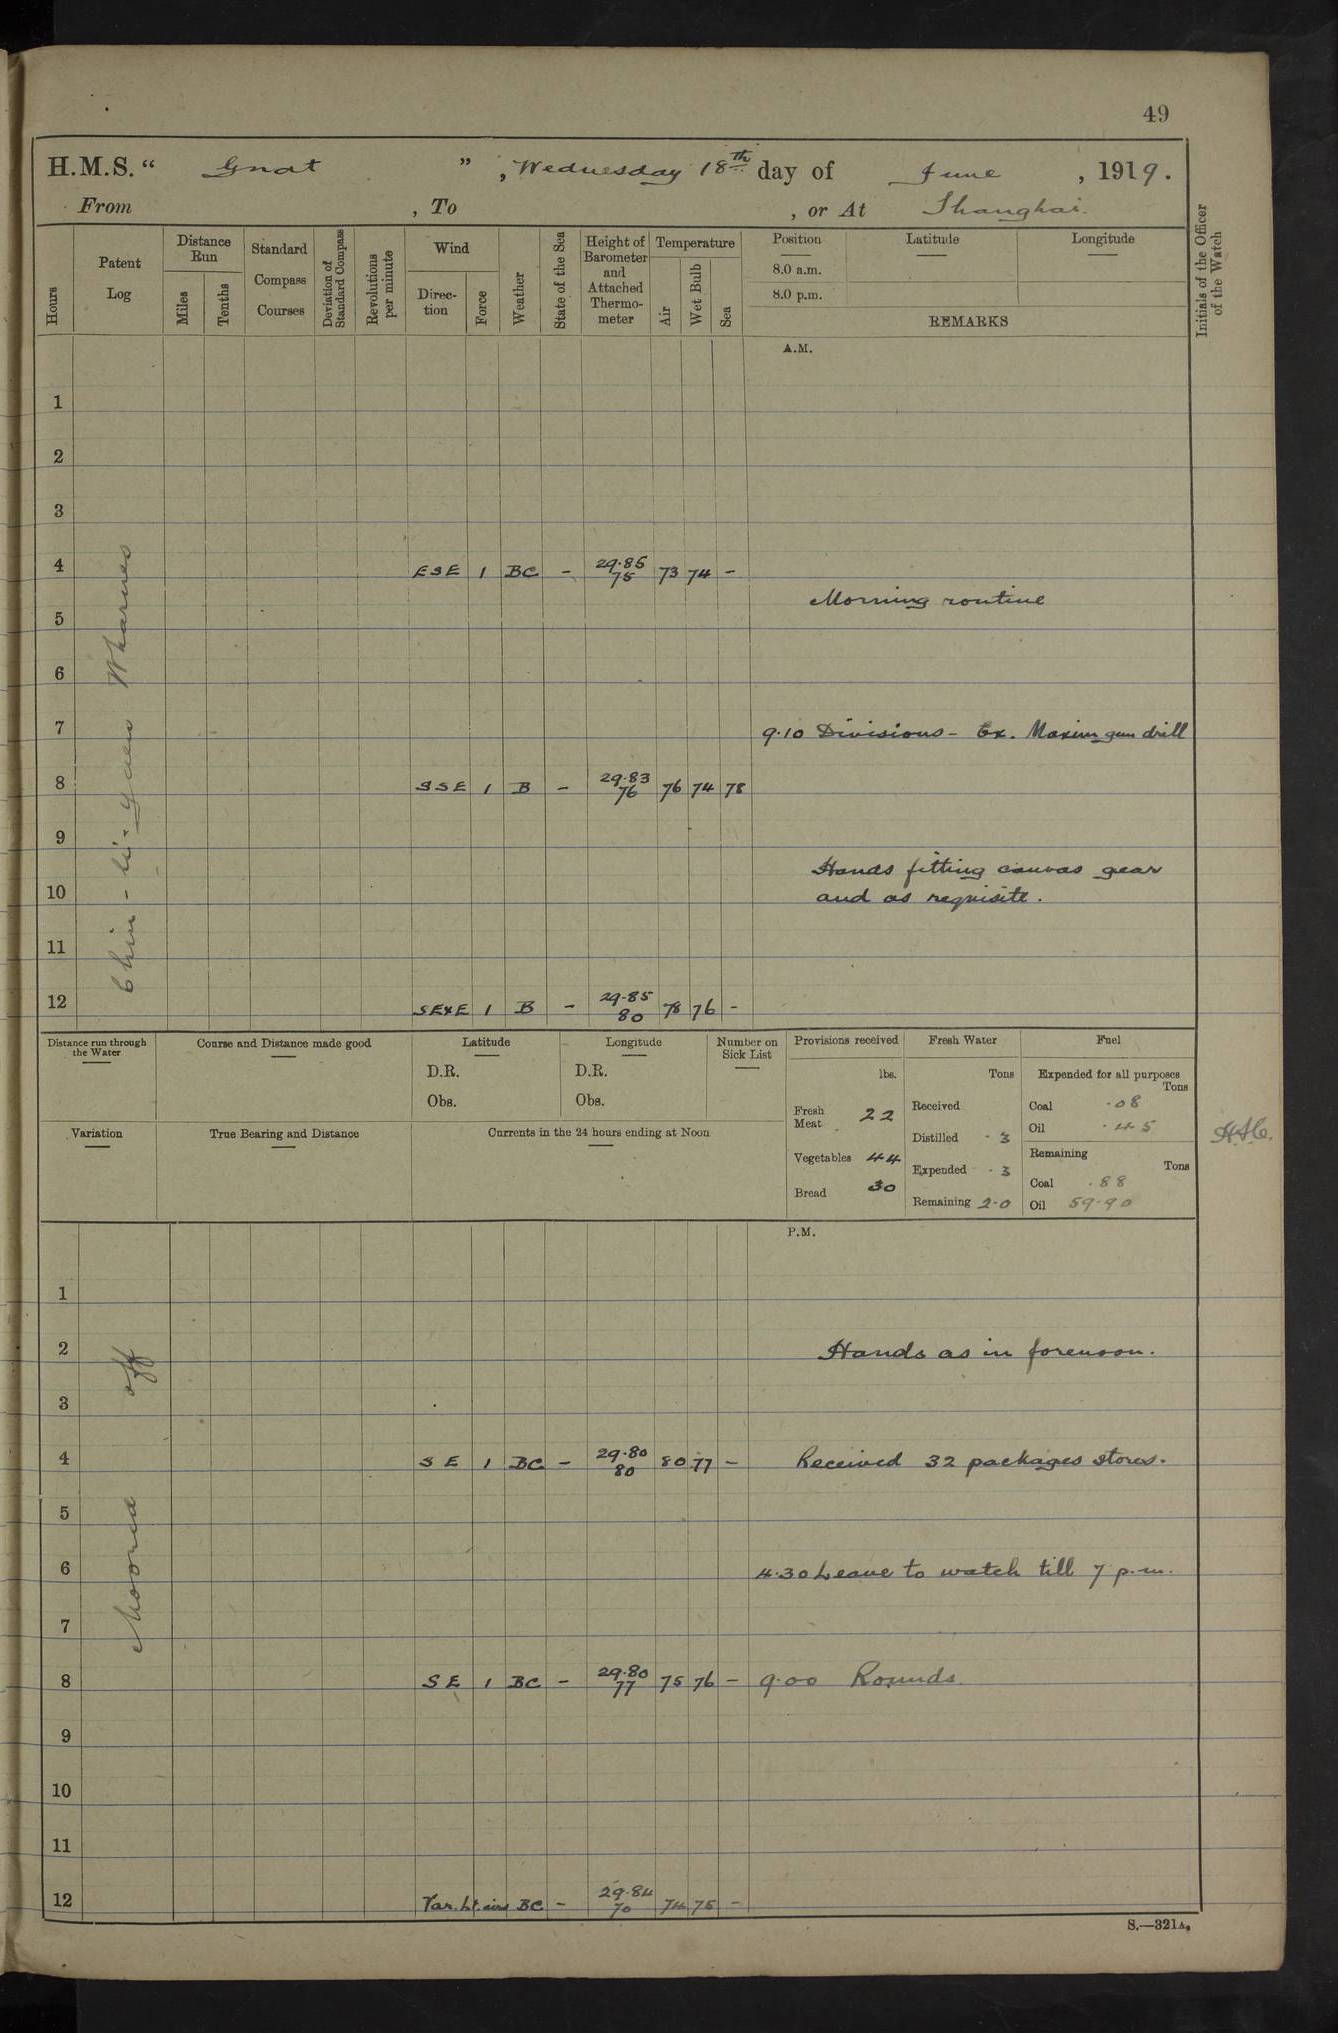 49
H.M.S. “ Gnat ” , Wednesday 18th day of June , 1919.
From , To , or At Shanghai.
Hours
Patent Log
Distance Run
Miles
Tenths
Standard Compass Courses
Deviation of Standard Compass
Revolutions per minute
Wind
Direc-tion
Force
Weather
State of the Sea
Height of Barometer and Attached Thermo-meter
Temperature
Air
Wet Bulb
Sea
Position
8.0 a.m.
8.0 p.m.
Latitude
Longitude
REMARKS
Initials of the Officer of the Watch
A.M.
1
2
3
4 ESE 1 BC - 29.85 75 73 74 -
Morning routine
5
6
7
9.10 Divisions - Ex. Maxim gun drill
8 SSE 1 B - 29.83 76 76 74 78
9
Hands fitting canvas gear
10
and as requisite.
11
12 SExE 1 B - 29.85 80 78 76 -
Distance run through the Water
Course and Distance made good
Latitude
D.R.
Obs.
Longitude
D.R.
Obs.
Number on Sick List
Variation
True Bearing and Distance
Currents in the 24 hours ending at Noon
Provisions received
lbs.
Fresh Meat 22
Vegetables 44
Bread 30
Fresh Water
Tons
Received
Distilled .3
Expended .3
Remaining 2.0
Fuel
Expended for all purposes
Tons
Coal .08
Oil .45
Remaining
Tons
Coal .88
Oil 59.90
P.M.
1
2 Hands as in forenoon.
3
4 SE 1 BC - 29.80 80 80 77 - Received 32 packages stores.
5
6 4.30 Leave to watch till 7 p.m.
7
8 SE 1 BC - 29.80 77 75 76 - 9.00 Rounds.
9
10
11
12 Var. Lt. airs BC - 29.84 70 74 75 -
Moored off
S.—321A.